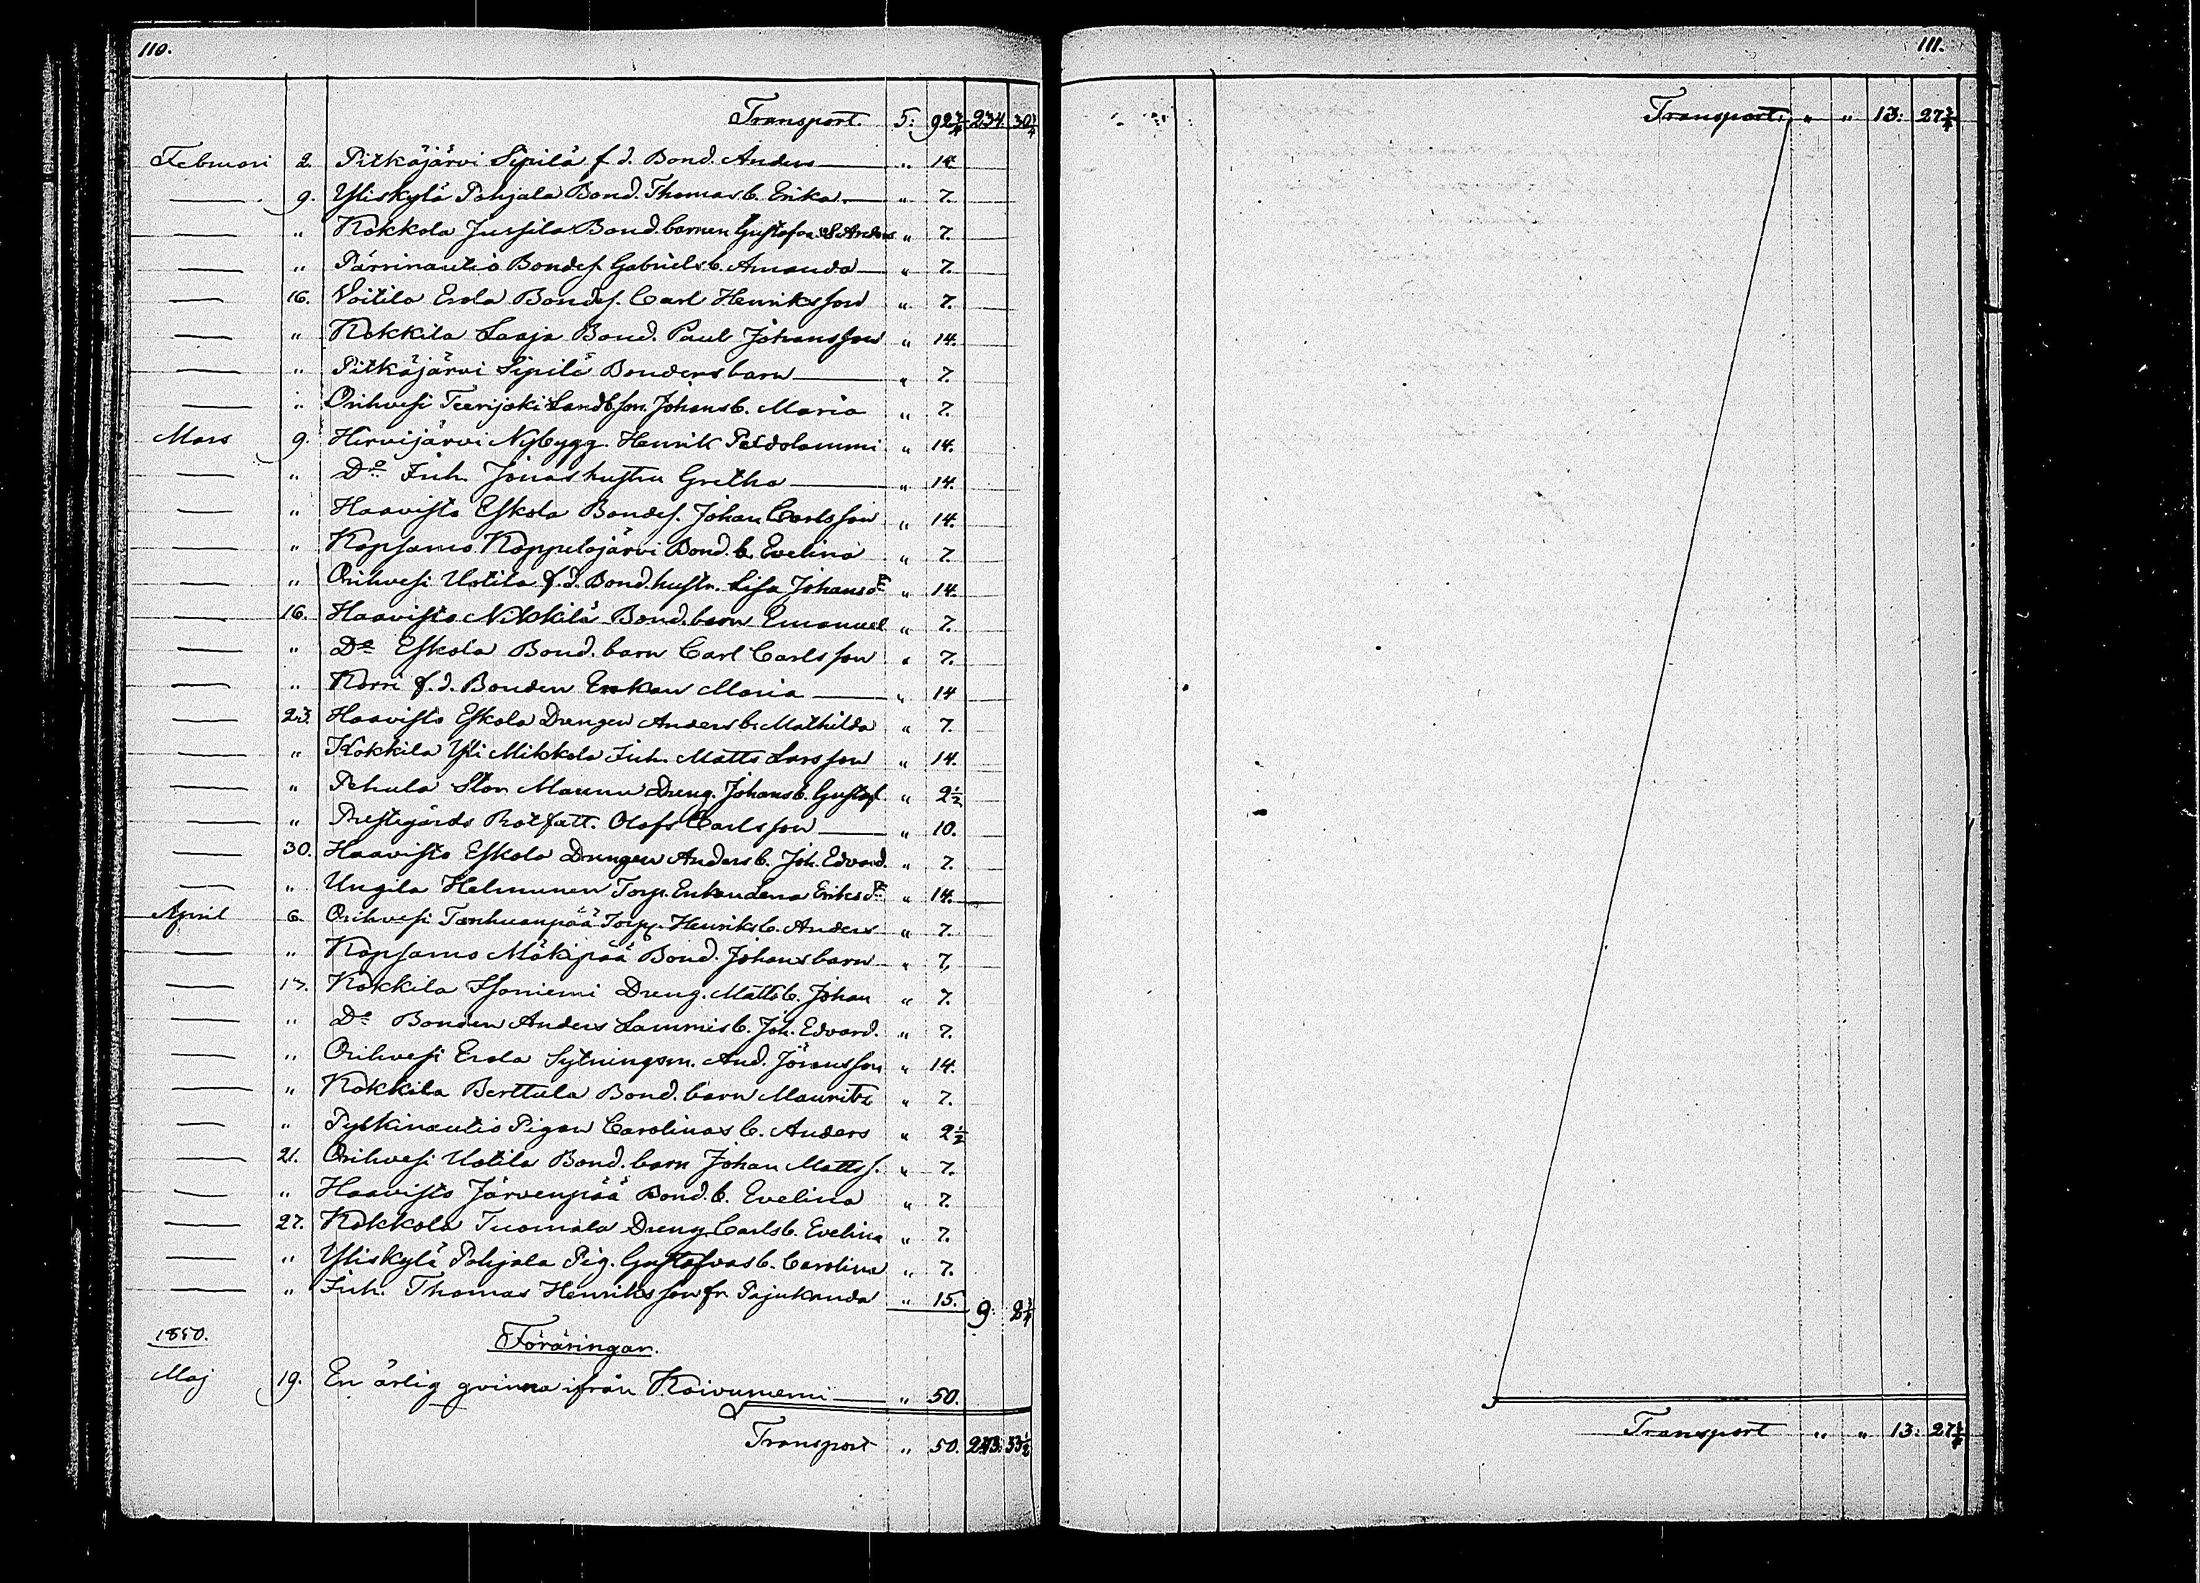 110.
Transport. 5: 92 3/4 234. 30 3/4
Februari 2. Pitkäjärvi Sipilä f. d. Bond. Anders — " 14.
— 9. Yliskylä Pohjala Bond. Thomas b. Erika — " 7.
— " Kokkola Jussila Bond. barnen Gustafva & Anders " 7.
— " Pärrinautio Bondes. Gabriels b. Amanda — " 7.
— 16. Voitila Erola Bondes. Carl Henriksson " 7.
— " Kokkila Laaja Bond. Paul Johansson " 14.
— " Pitkäjärvi Sipilä Bondens barn — " 7.
— " Orihvesi Teerijoki Landb. son. Johans b. Maria " 7.
Mars 9. Hirvijärvi Nybygg. Henrik Petdolammi " 14.
— " Do Inh. Jonas hustru Gretha — " 14.
— " Haavisto Eskola Bondes. Johan Carlsson " 14.
— " Kopsamo Koppelojärvi Bond. b. Evelina " 7.
— " Orihvesi Uotila f. d. Bond. hustr. Lisa Johansdr " 14.
— 16. Haavisto Nikkilä Bond. barn Emanuel " 7.
— " Do Eskola Bond. barn Carl Carlsson " 7.
— " Korri f. d. Bonden Enkan Maria — " 14
— 23. Haavisto Eskola Drengen Anders b. Mathilda " 7.
— " Kokkila Yli Mikkola Inh. Matts Larsson " 14.
— " Pehula Stor Maunu Dreng. Johans b. Gustaf " 2 1/2
— " Prestegårds Rotfatt. Olofs Carlsson — " 10.
— 30. Haavisto Eskola Drengen Anders b. Joh. Edvard. " 7.
— " Ungila Helmunen Torp. Enkan Lena Eriksdr " 14.
April 6. Orihvesi Tanhuanpää Torp. Henriks b. Anders " 7.
— " Kopsamo Mäkipää Bond. Johans barn " 7.
— 17. Kokkila Isoniemi Dreng. Matts b. Johan " 7.
— " Do Bonden Anders Lammis b. Joh. Edvard. " 7.
— " Orihvesi Erola Sytningsm. And. Jöransson " 14.
— " Kokkila Berttula Bond. barn Mauritz " 7.
— " Pylkinautio Pigan Carolinas b. Anders " 2 1/2
— 21. Orihvesi Uotila Bond. barn Johan Matts s. " 7.
— " Haavisto Järvenpää Bond. b. Evelina " 7.
— 27. Kokkola Tuomala Dreng. Carls b. Evelina " 7.
— " Yliskylä Pohjala Pig. Gustafvas b. Carolina " 7.
— " Inh. Thomas Henriksson fr. Pajukanda " 15. 9. 2 3/4
1850. Föräringar.
Maj 19. En ärlig qvinna ifrån Koivuniemi — " 50.
Transport " 50. 243: 33 1/2
111.
Transport. " " 13: 27 3/4
Transport " " 13: 27 3/4